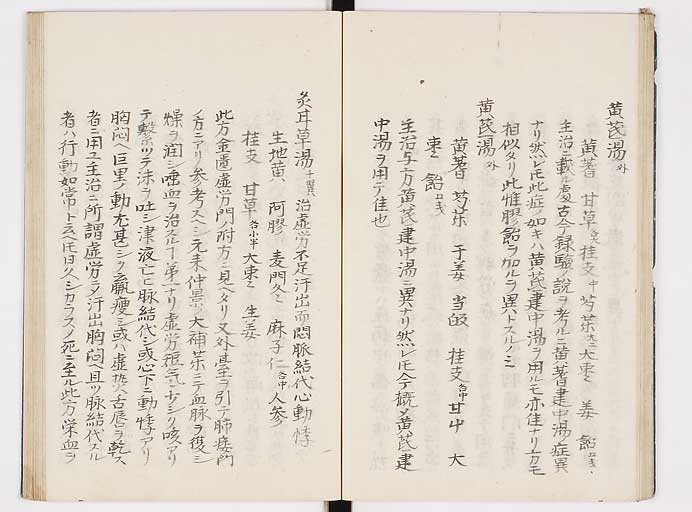 黄芪湯外
黄蓍 甘草 桂支中 芍薬大二 大棗三 姜 飴
主治ニ載ル處古今録驗ノ説ヲ考ルニ黄蓍建中湯症異
ナリ然レ𪜈此症ノ如キハ黄芪建中湯ヲ用ルモ亦佳ナリ方モ
相似タリ此惟膠飴ヲ加ルヲ異トスルノミ
黄芪湯外
黄蓍 芍薬 干姜 当皈 桂支各中 甘中 大
棗三 飴
主治与方黄芪建中湯ニ異ハナリ然レ𪜈今概〆黄芪建
中湯ヲ用テ佳也
炙甘草湯 千翼 治虚労不足汗出而悶脈結代心動悸
生地黄八 阿膠 麦門冬三 麻子仁各中 人参
桂支 甘草各小半 大棗三 生姜
此方金匱虚労門ノ附方ニ見ヘタリ又外臺ヲ引テ肺痿門
ノ方ニアリ参考スヘシ元来仲景ノ大補薬ニテ血脉ヲ復シ
燥ヲ潤シ唾血ヲ治スル第一ナリ虚労短気ニ少シク咳アリ
テ繋ホツテ沫ヲ吐シ津液亡ヒ脉結代シ或心下ニ動悸アリ
胸悶ヘ巨里ノ動尤甚シク羸痩シ或ハ虚熱シ舌唇ヲ乾ス
者ニ用ユ主治ニ所謂虚労シテ汗出胸悶ヘ且ツ脉結代スル
者ハ行動如常ト云ヘ𪜈日久シカラスノ死ニ至ル此方栄血ヲ